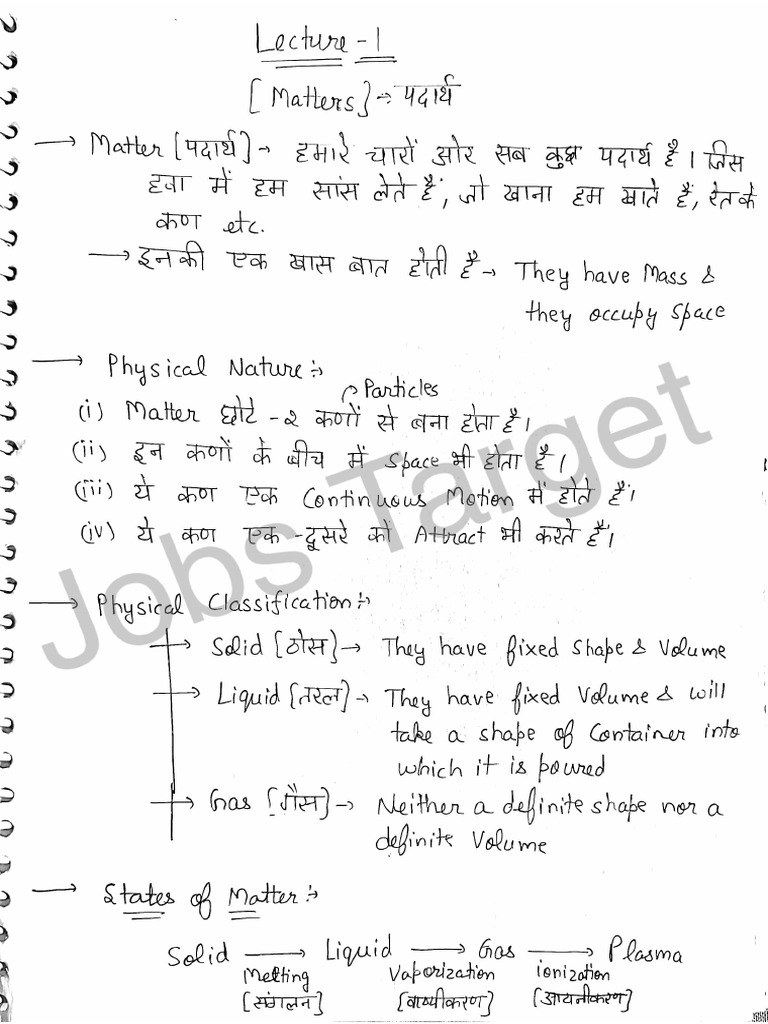 Lecture - 1
[Matters] → पदार्थ
→ Matter [पदार्थ] → हमारे चारों ओर सब कुछ पदार्थ है। जिस
हवा में हम सांस लेते हैं, जो खाना हम खाते हैं, रेत के
कण etc.
→ इनकी एक खास बात होती है → They have Mass &
they occupy space
→ Physical Nature :→
Particles
(i) Matter छोटे - २ कणों से बना होता है।
(ii) इन कणों के बीच में Space भी होता है।
(iii) ये कण एक Continuous Motion में होते हैं।
(iv) ये कण एक - दूसरे को Attract भी करते हैं।
Jobs Target
→ Physical Classification :→
→ Solid [ठोस] → They have fixed Shape & Volume
→ Liquid [तरल] → They have fixed Volume & will
take a shape of Container into
which it is poured
→ Gas [गैस] → Neither a definite shape nor a
definite Volume
→ States of Matter :→
Solid → Liquid → Gas → Plasma
Melting Vaporization ionization
[संगलन] [वाष्पीकरण] [आयनीकरण]